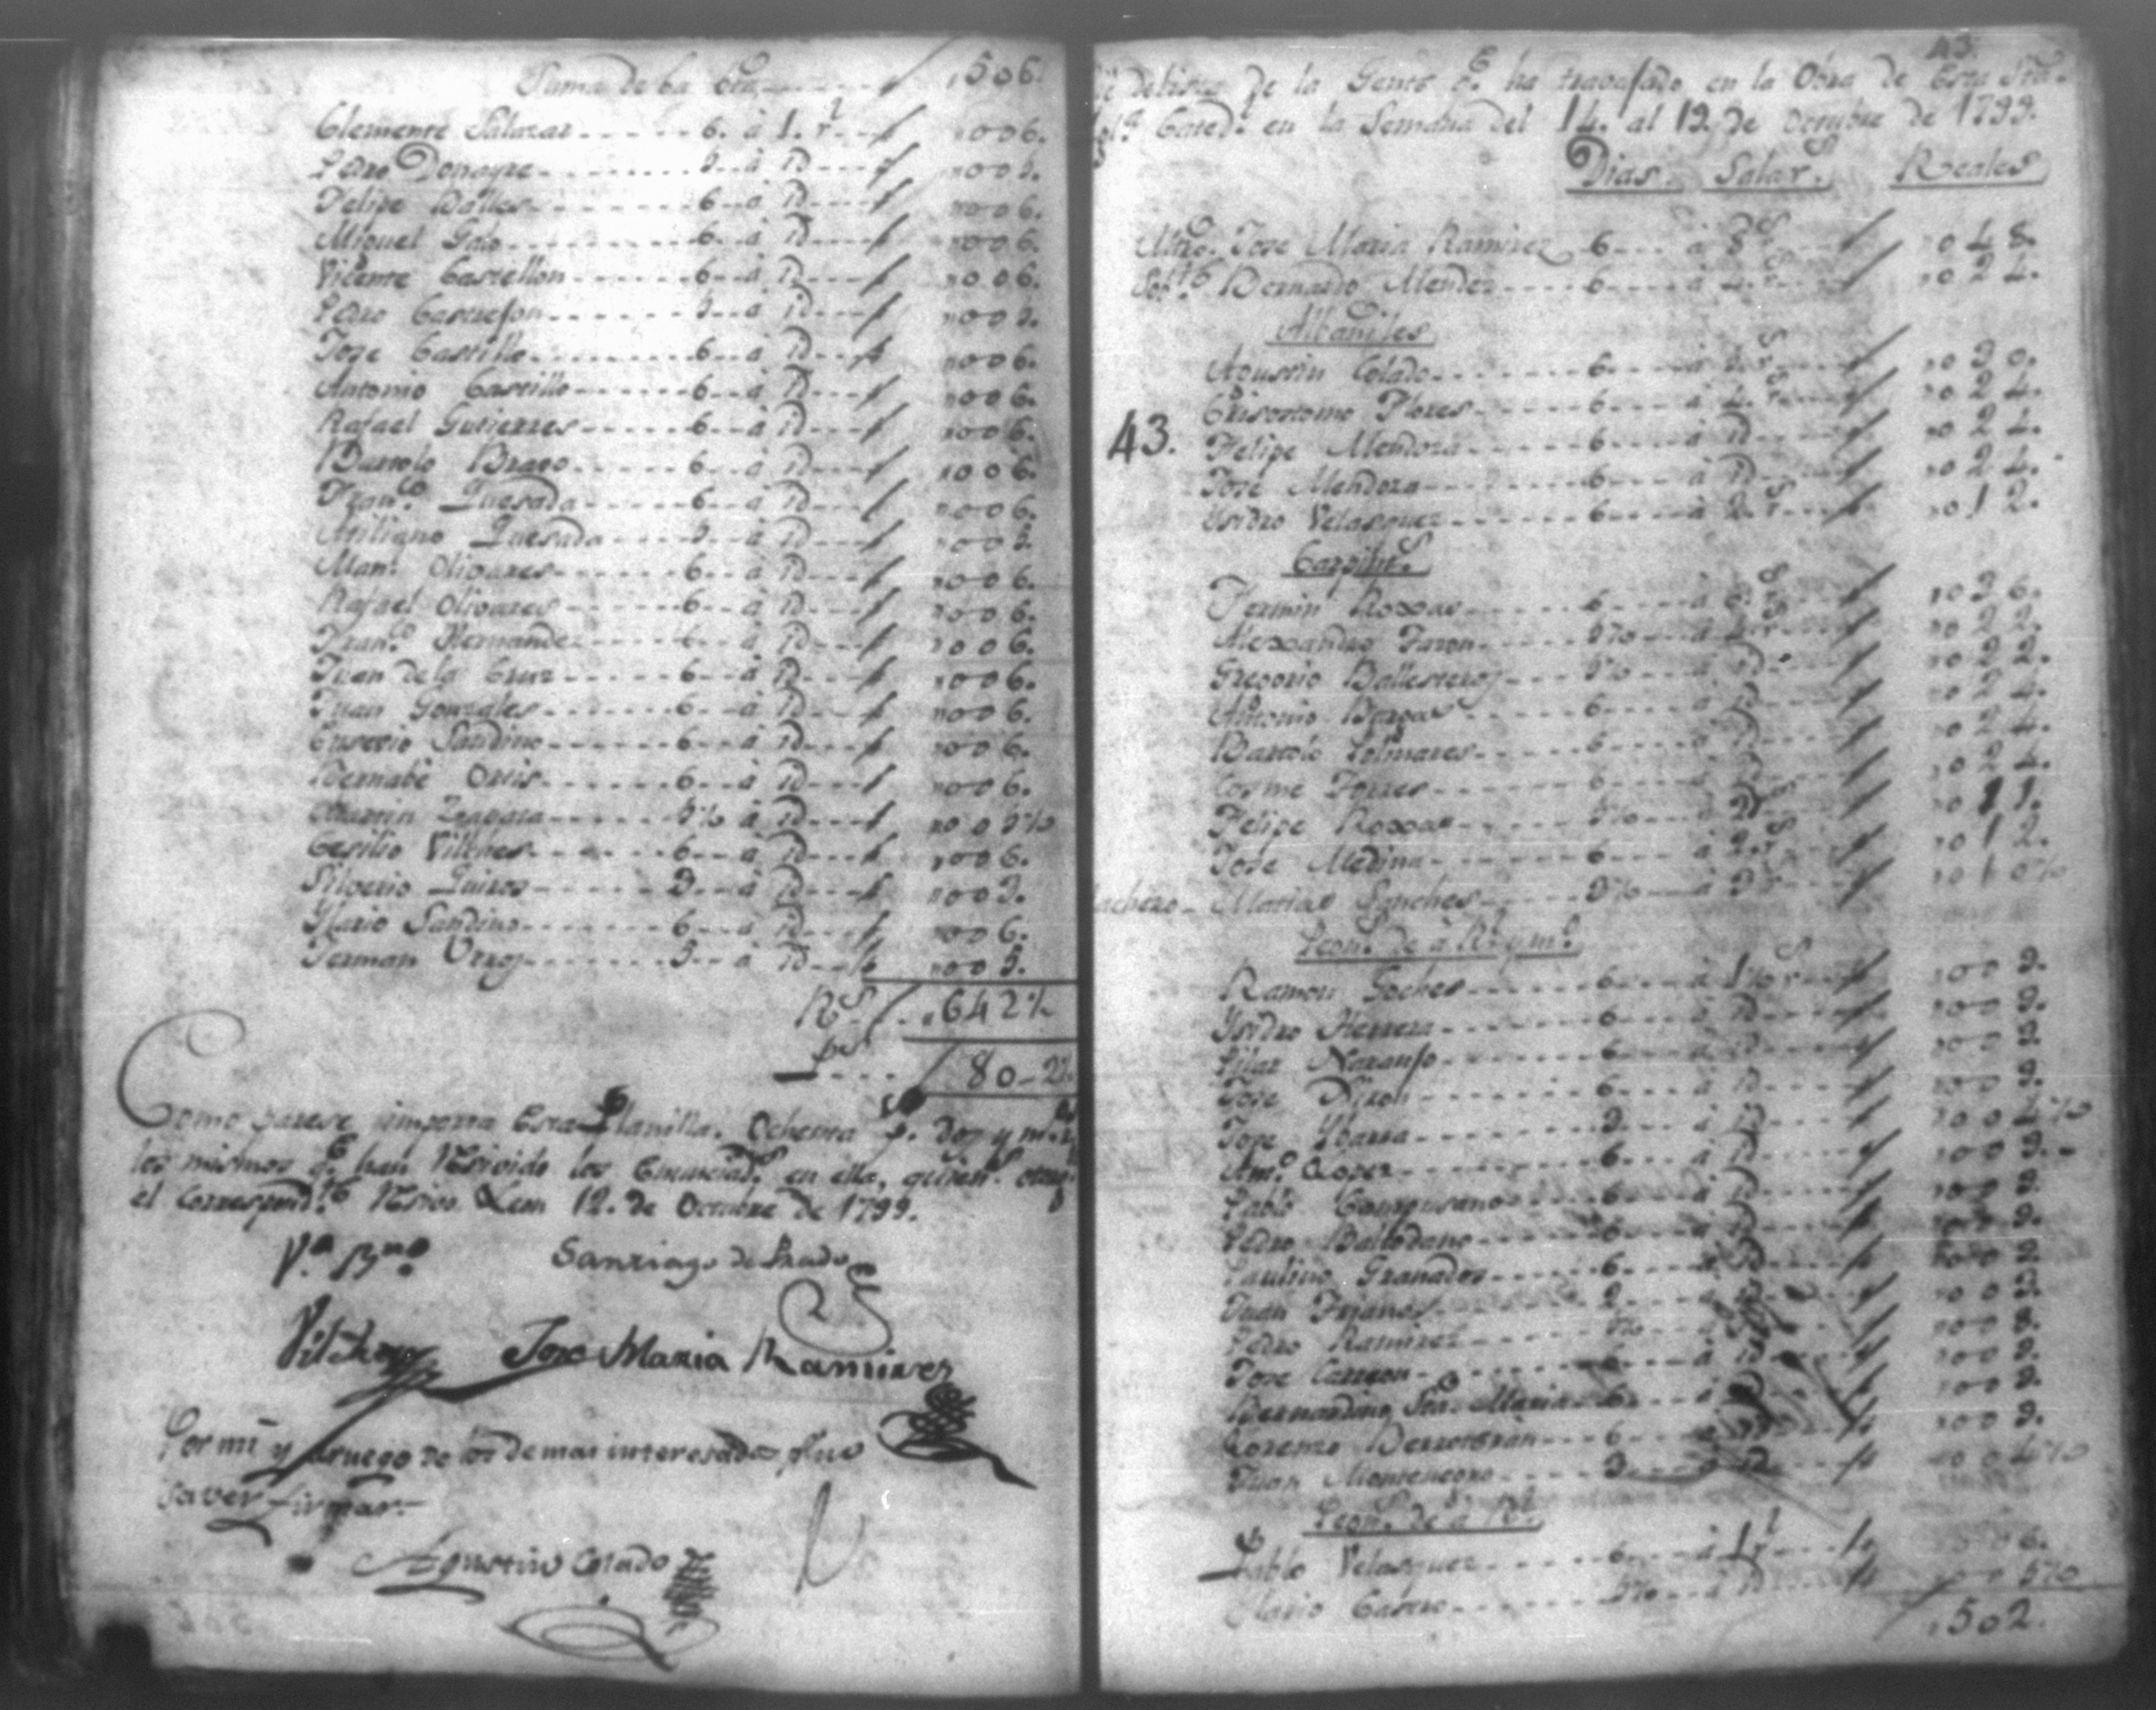 Suma de la bta ,506.
Clemente Salazar 6. à 1. rl ,,006.
Pedro Donayre 3 à id ,,003.
Felipe Balles 6 à id ,,006.
Miguel Galo 6 à id ,,006.
Visente Castellon 6 à id ,,006.
Pedro Castrejon 3 à id ,,003.
Jose Castillo 6 à id ,,006.
Antonio Castillo 6 à id ,,006.
Rafael Gutierres 6 à id ,,006.
Bartolo Bravo 6 à id ,,006.
Franco Quesada 6 à id ,,006.
Quesada à id
Manl Olivares 6 à id ,,006.
Rafael Olivares 6 à id ,,006.
Franco Hernandez 6 à id ,,006.
Juan de la Cruz 6 à id ,,006.
Juan Gonzales 6 à id ,,006.
Eusevio Sandino 6 à id ,,006.
Bernabè Ortis 6 à id ,,006.
à id
Cesilio Vilches 6 à id ,,006.
Silverio Quiros 3 à id ,,003.
Ylario Sandino 6 à id ,,006.
German 5 à id ,,005.
Rs ,642½
ps 80-2½
Como parese importa esta Planilla, Ochenta ps. dos y mo. rs
los mismos qe han Resivido los Enunciads en ella, quienes
el Correspondte Resivo. Leon 12. de Octubre de 1799.
Vo. Bno. Santiago de Prado
Vilchez Jose Maria Ramires
Por mi y à ruego de los demas interesados pr no
saver firmar.
Agustin Colado
43.
de la Gente qe ha travajado en la Obra de Esta Sta.
Catedl en la Semana del 14. al 19. de Octubre de 1799.
Dias Salars Reales
Mtro. Jose Maria Ramirez 6 à 8 rs ,,048.
Bernardo Mendez 6 à 4 rs ,,024.
Albañiles
Agustin Colado 6 à 5 rs ,,030.
Crisostomo Flores 6 à 4 rs ,,024.
43. Felipe Mendoza 6 à id ,,024.
Jose Mendoza 6 à id ,,024.
Ysidro Velasquez 6 à 2 rs ,,012.
Carpints
Fermin Roxas 6 à 6 rs ,,036.
Alexandro 5½ à 4 rs ,,022.
Gregorio Ballesteros 5½ à id ,,022.
Antonio 6 à id ,,024.
Bartolo Colmares 6 à id ,,024.
Cosme Torres 6 à id ,,024.
Felipe Roxas 5½ à 2 rs ,,011.
Jose Medina 6 à 2 rs ,,012.
Matias Sanches 3½ à 3 rs ,,010½
Peons de à Rl y mo
Ramon Goches 6 à 1½ rs ,,009.
Ysidro Herrera 6 à id ,,009.
Pilar Naranjo 6 à id ,,009.
Jose 6 à id ,,009.
Jose Ybarra 3 à id ,,004½
Anto Lopez 6 à id ,,009.
Pablo Campusano 6 à id ,,009.
Pedro Baltodano 6 à id ,,009.
Paulino Granados 6 à id ,,009.
Juan 2 à id ,,003.
Pedro Ramirez
Jose Carrion 6 à id ,,009.
Bernardino Sta. Maria 6 à id ,,009.
Lorenzo Berroteran 6 à id ,,009.
Juan Montenegro 3 à id ,,004½
Peons de à Rl
Pablo Velasquez 6 à 1 rl ,,006.
Ylario Castro 5½ à id ,,005½
,502.